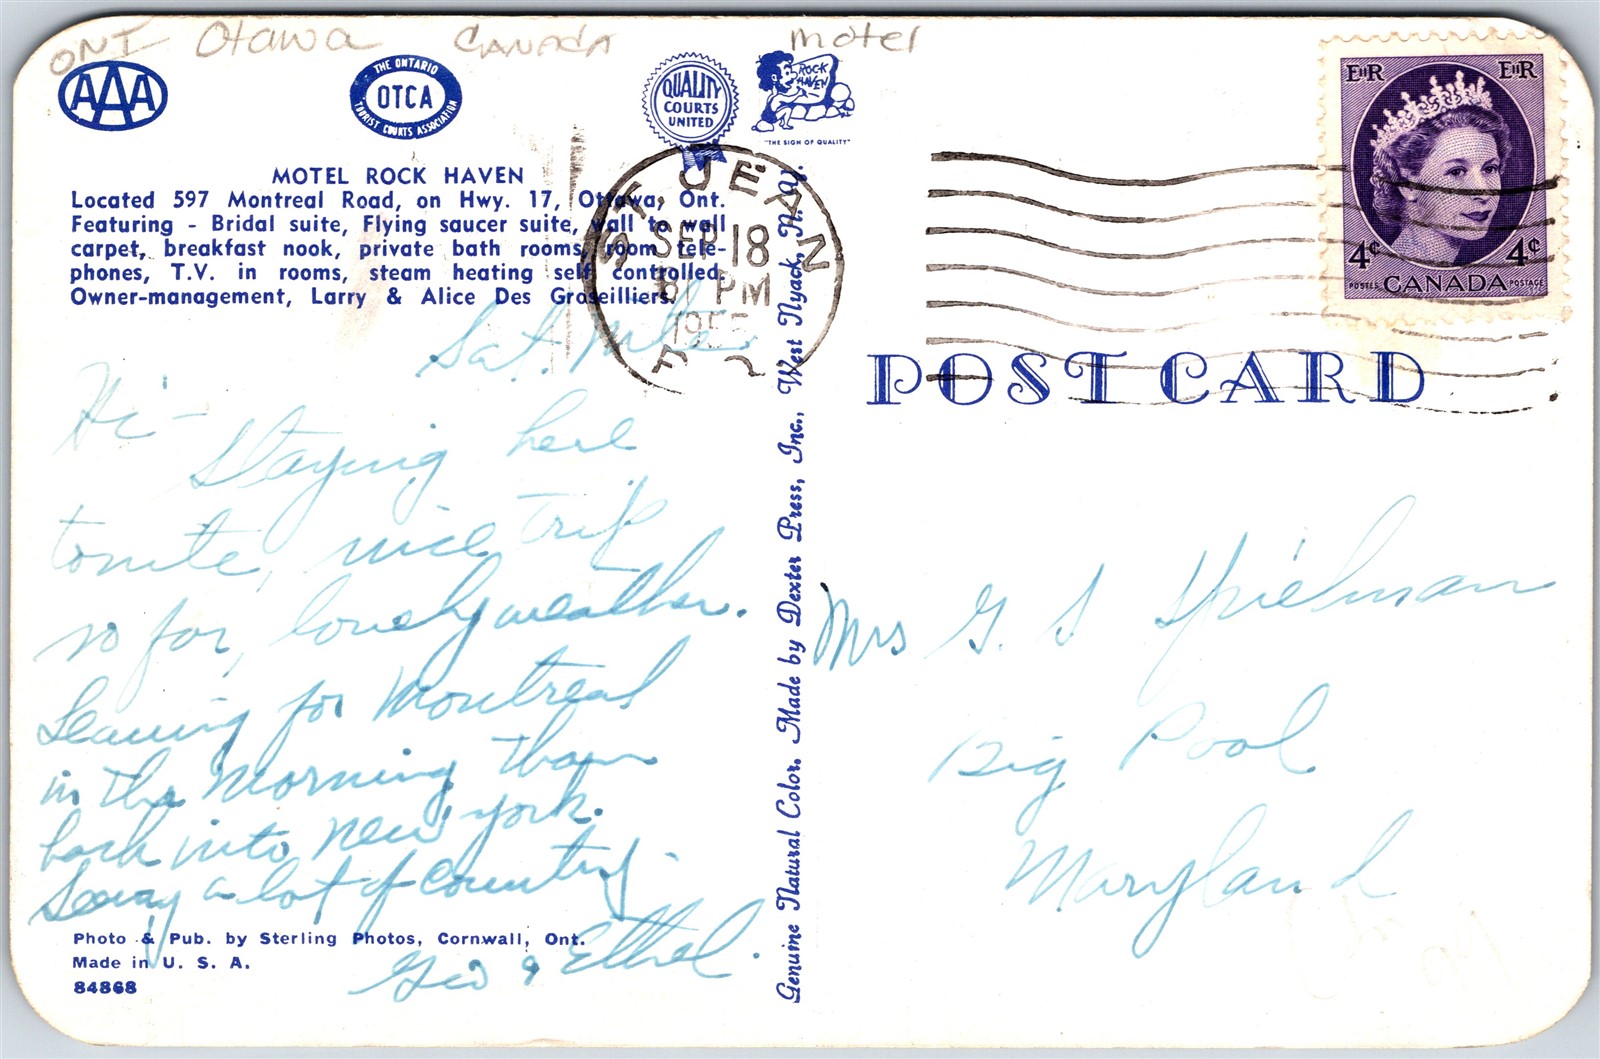 ONT Otawa CANADA motel
AAA
THE ONTARIO
OTCA
TOURIST COURTS ASSOCIATION
QUALITY
COURTS
UNITED
ROCK
HAVEN
"THE SIGN OF QUALITY"
MOTEL ROCK HAVEN
Located 597 Montreal Road, on Hwy. 17, Ottawa, Ont.
Featuring - Bridal suite, Flying saucer suite, wall to wall
carpet, breakfast nook, private bath rooms, room tele-
phones, T.V. in rooms, steam heating self controlled.
Owner-management, Larry & Alice Des Groseilliers.
ST JEAN
SEP 18
PM
P 2
EIIR EIIR
4¢ 4¢
POSTES CANADA POSTAGE
POST CARD
Sat. Nite
Hi -
Staying here
tonite, nice trip
so far, lovely weather.
Leaving for Montreal
in the morning than
back into New York.
Seeing a lot of country.
Geo & Ethel.
Photo & Pub. by Sterling Photos, Cornwall, Ont.
Made in U. S. A.
84868
Genuine Natural Color. Made by Dexter Press, Inc., West Nyack, N.Y.
Mrs G. S Spielman
Big Pool
Maryland